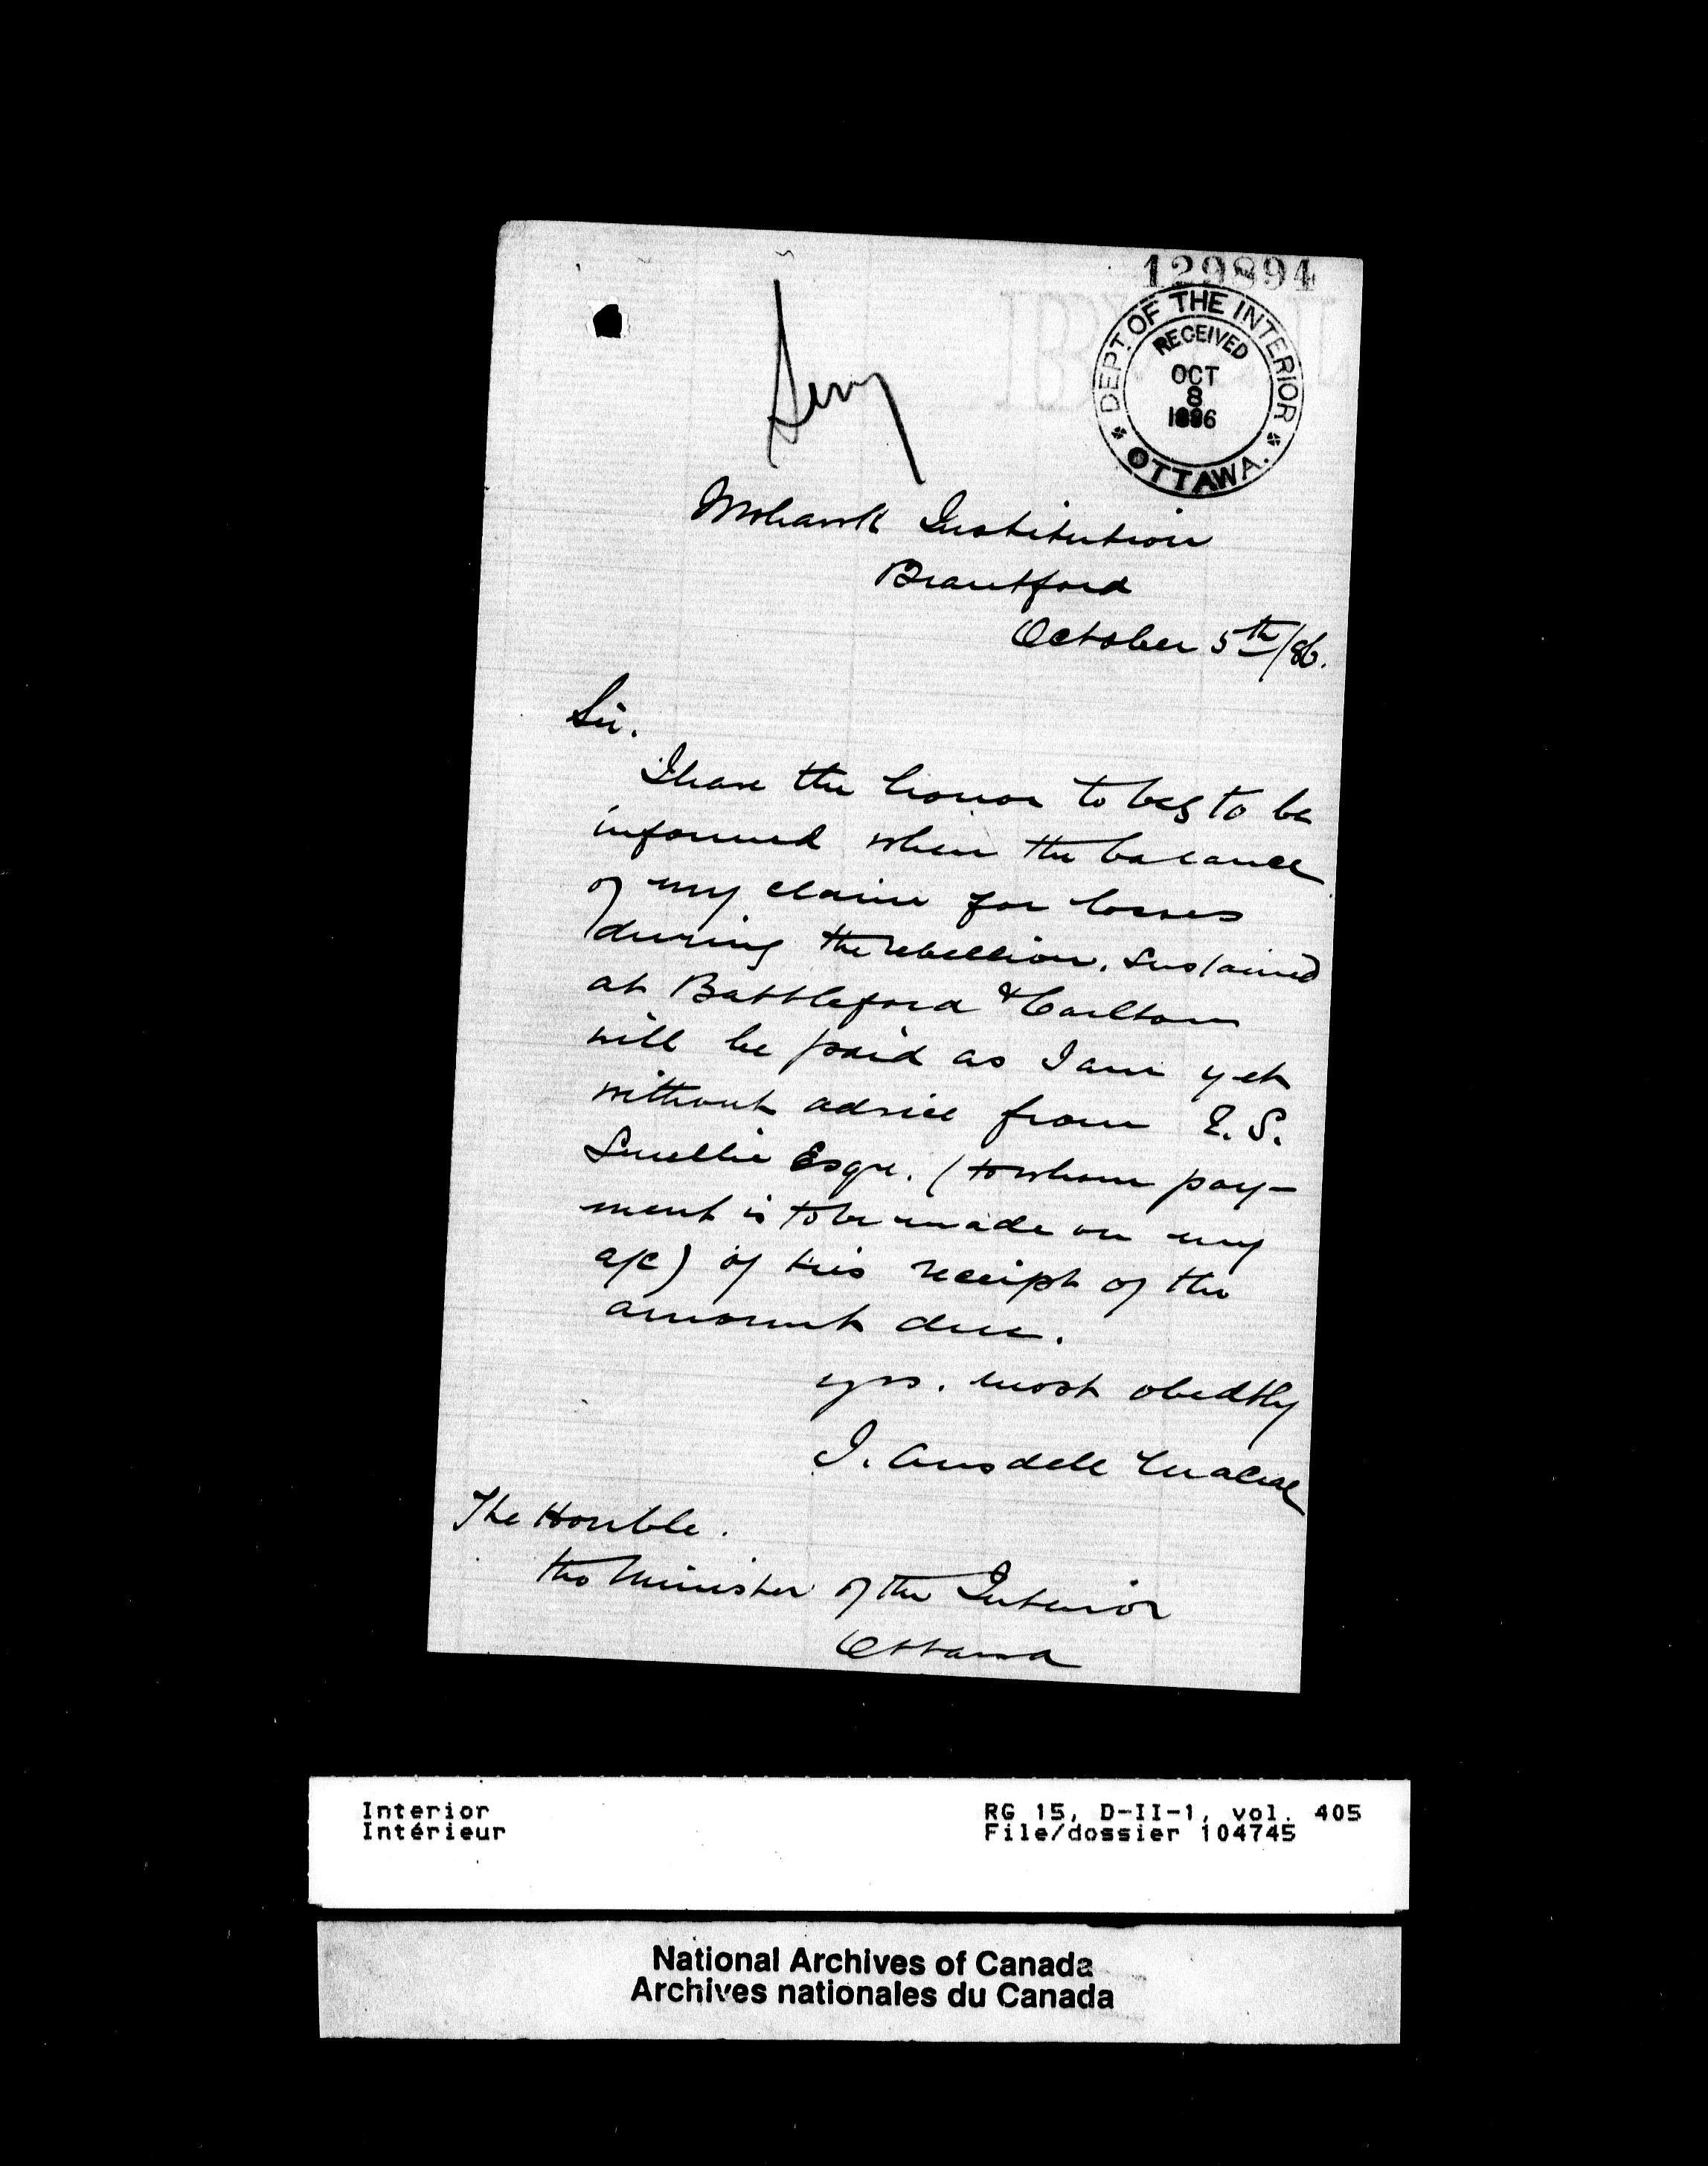 129894
DEPT. OF THE INTERIOR
RECEIVED
OCT
8
1886
OTTAWA.
Mohawk Institution
Brantford
October 5th/86.
Sir.
I have the honor to beg to be
informed when the balance
of my claim for losses
during the rebellion, sustained
at Battleford & Carlton
will be paid as I am yet
without advice from E. S.
Smellie Esqre. (to whom pay-
ment is to be made on my
a/c) of his receipt of the
amount due.
yrs. most obedtly
J. Ansdell Macrae
The Honble.
the Minister of the Interior
Ottawa
Interior
Intérieur
RG 15, D-II-1, vol. 405
File/dossier 104745
National Archives of Canada
Archives nationales du Canada